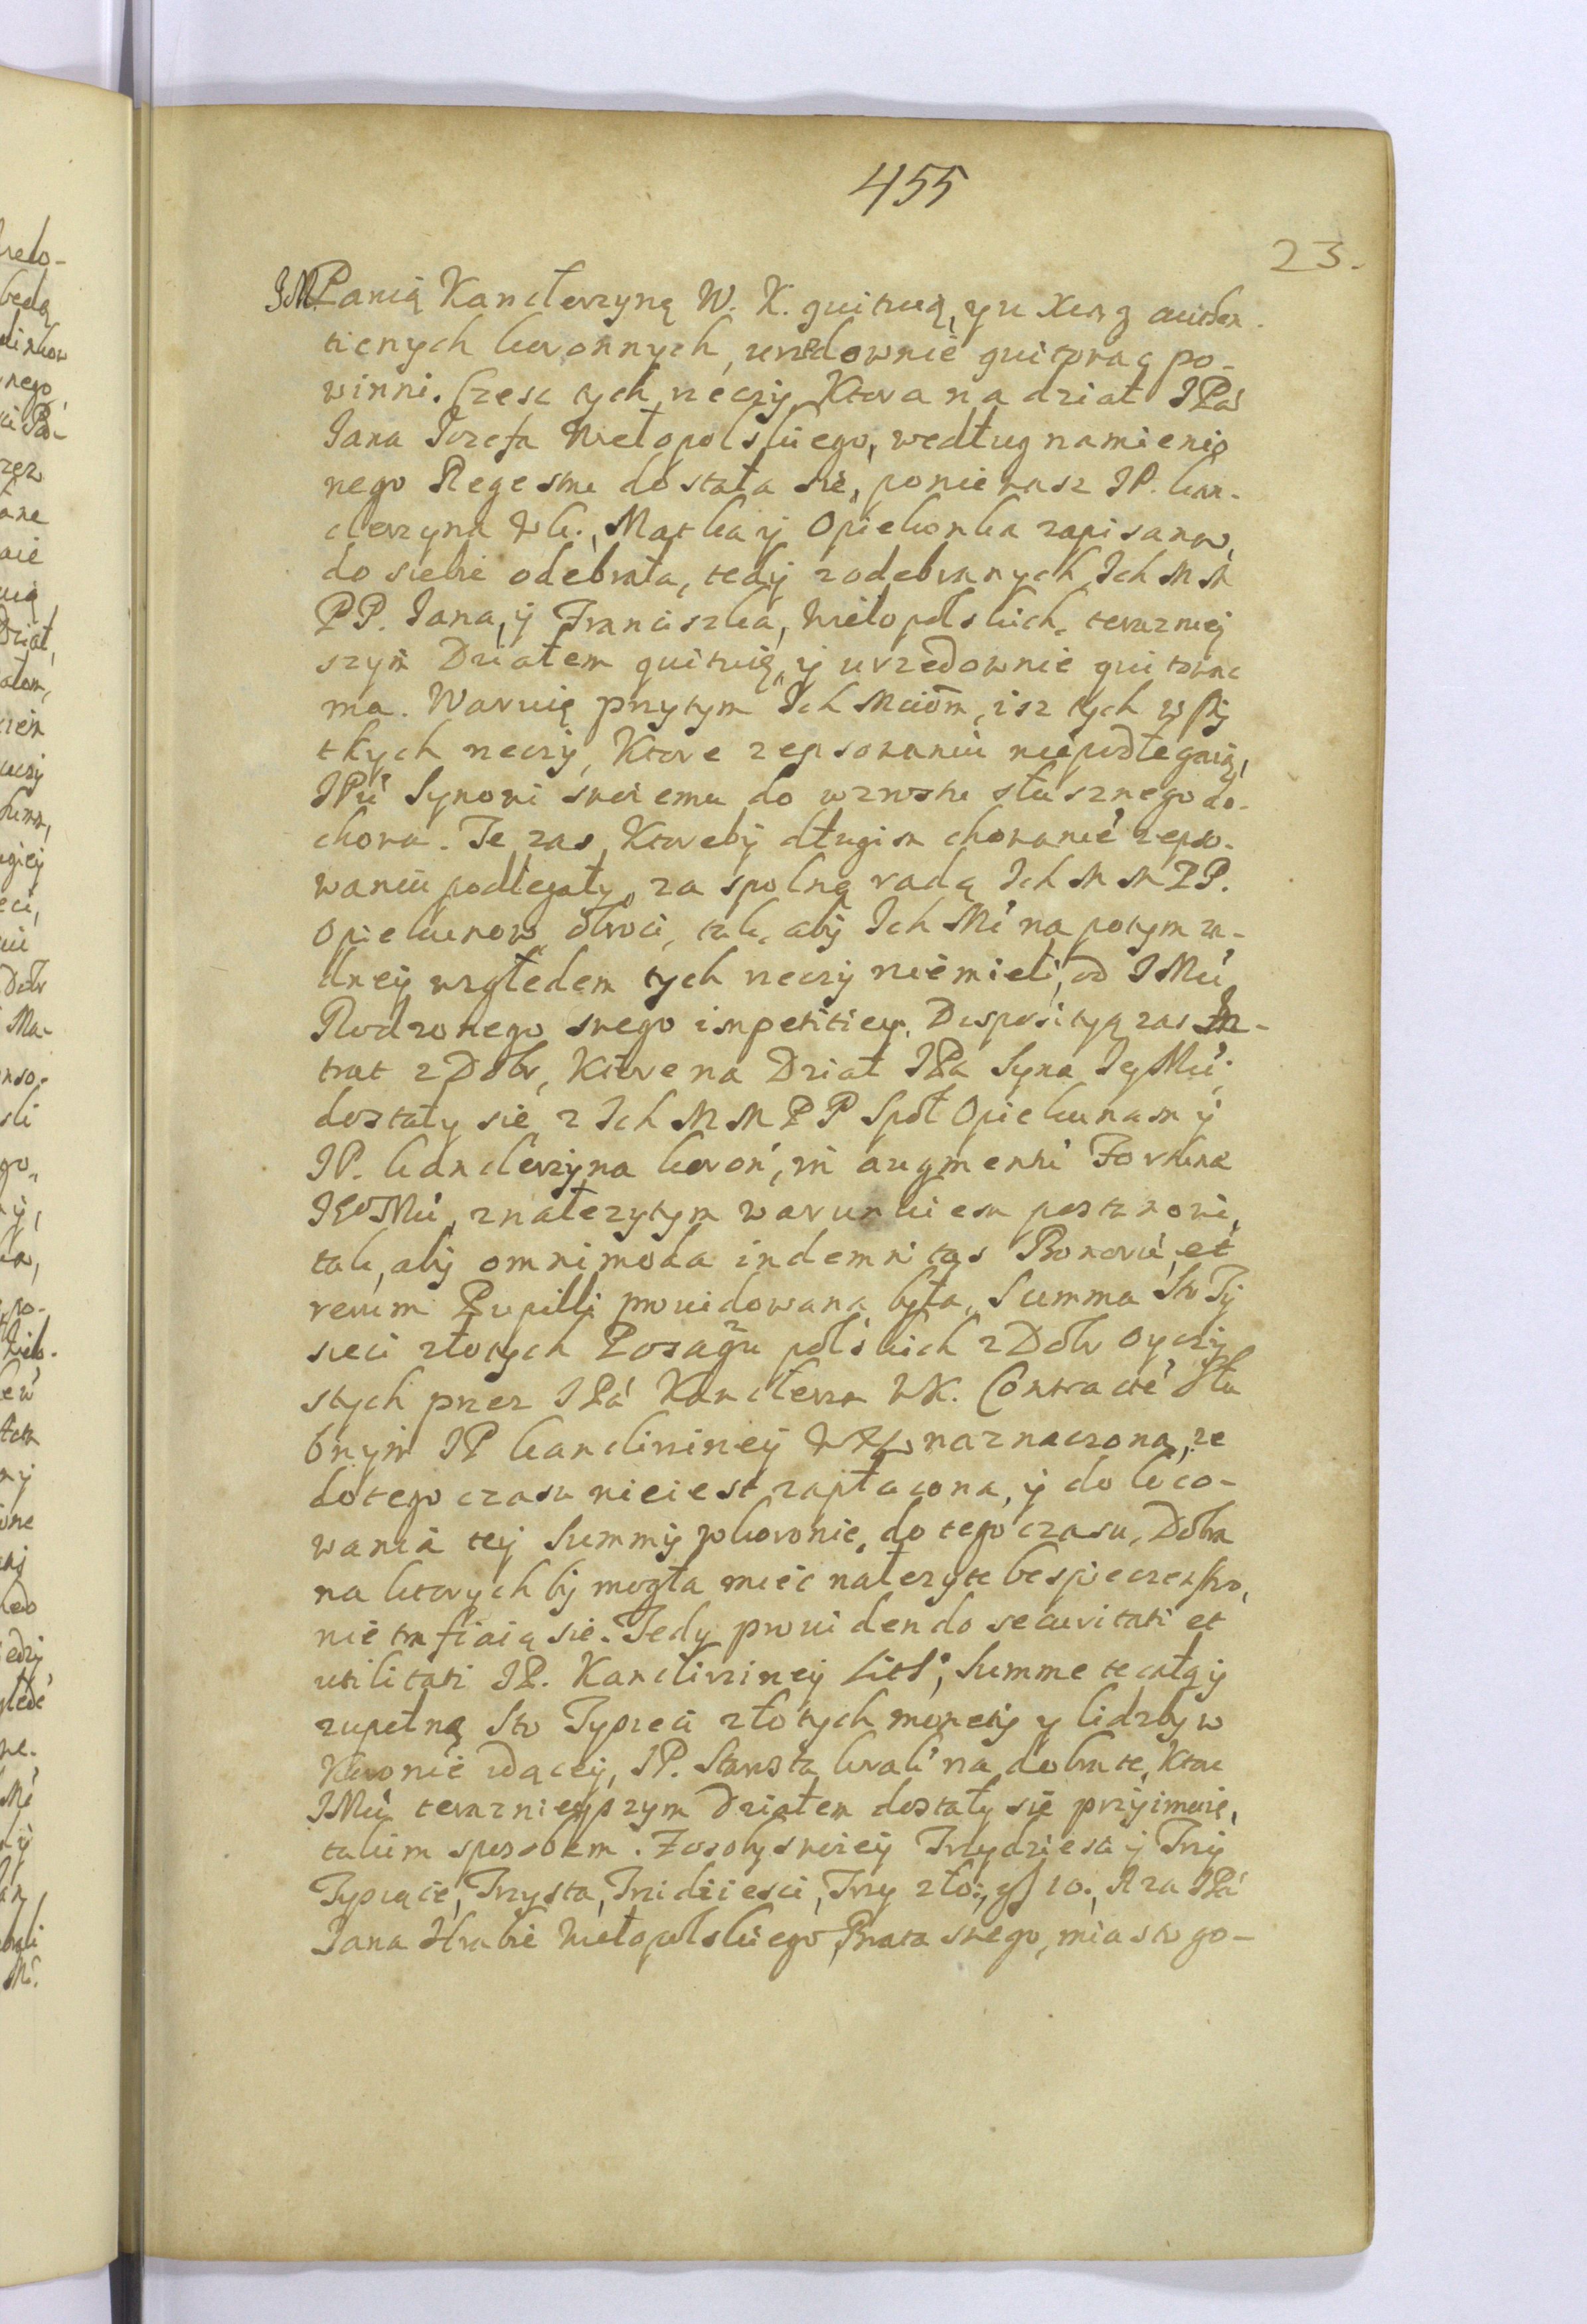 455
23.
JM Panią Kanclerzynę W. K. guituią, y u Xiąg authen-
ticnych koronnych, urzędownie guitować po-
winni. Częsc tych rzeczy, Ktora na dział JPa
Jana Jozefa Wielopolskiego, według namienio
nego Regestru dostała się, poniewasz JP. kan-
clerzyna Wk., Matka y Opiekonka zapisana,
do siebie odebrała, tedy z odebranych Ich M M
PP. Jana, y Franciszka, Wielopolskich, terazniey
szym Działem guituią, y urzedownie guitowac
ma. Waruią przytym Ich Mciom, isz tych wszy
tkych rzeczy, Ktore zepsowaniu nie podlegaią,
JPu Synowi swoiemu do wzrostu słusznego do-
chowa. Te zas, Ktoreby długim chowanie zepso-
waniu podlegały, za spolną radą Ich M M PP.
Opiekunow obroci, tak, aby Ich Mć na potym ża-
dney względem tych rzeczy nie mieli, od JMci
Rodzonego swego impetitiey. Disposityą zas In-
trat z Dobr, Ktore na Dział JPa Syna Jey Mci,
dostały się z Ich M M P P Społ Opiekunamy
JP. kanclerzyna koron, in augmenti Fortunae
JEoMci, z należytym warunkiem postanowi,
tak, aby omnimoda indemnitas Bonorū, et
rerum Pupilli prouidowana była, Summa Sto Ty
sięci złotych Posagu polskich z Dobr Oyczy
stych przez JPa Kanclerza WK. Contracte Slu
bnym JP kancliriney WK naznaczona, ze
do tego czasu nieiest zapłacona, y do loco-
wania tey Summy w koronie, do tego czasu, Dobra
na ktorych by mogła mieć należyte bespieczenstwo,
nie trafiaią się. Tedy prouidendo securitati et
utilitati JP. Kancliriney Summe te całą y
zupełną Sto Tysięci złotych monety y lidzby w
Koronie idącey, JP. Starosta krak na dobra te, Ktore
JMci teraznieyszym Działem dostały się przyimuie,
takim sposobem. Z osoby swoiey Trzydziesci y Trzy
Tysiące, Trzysta, Trzidziesci, Trzy zło:, gr 10., A za JPa
Jana Hrabie Wielopolskiego, Brata swego, miasto go-